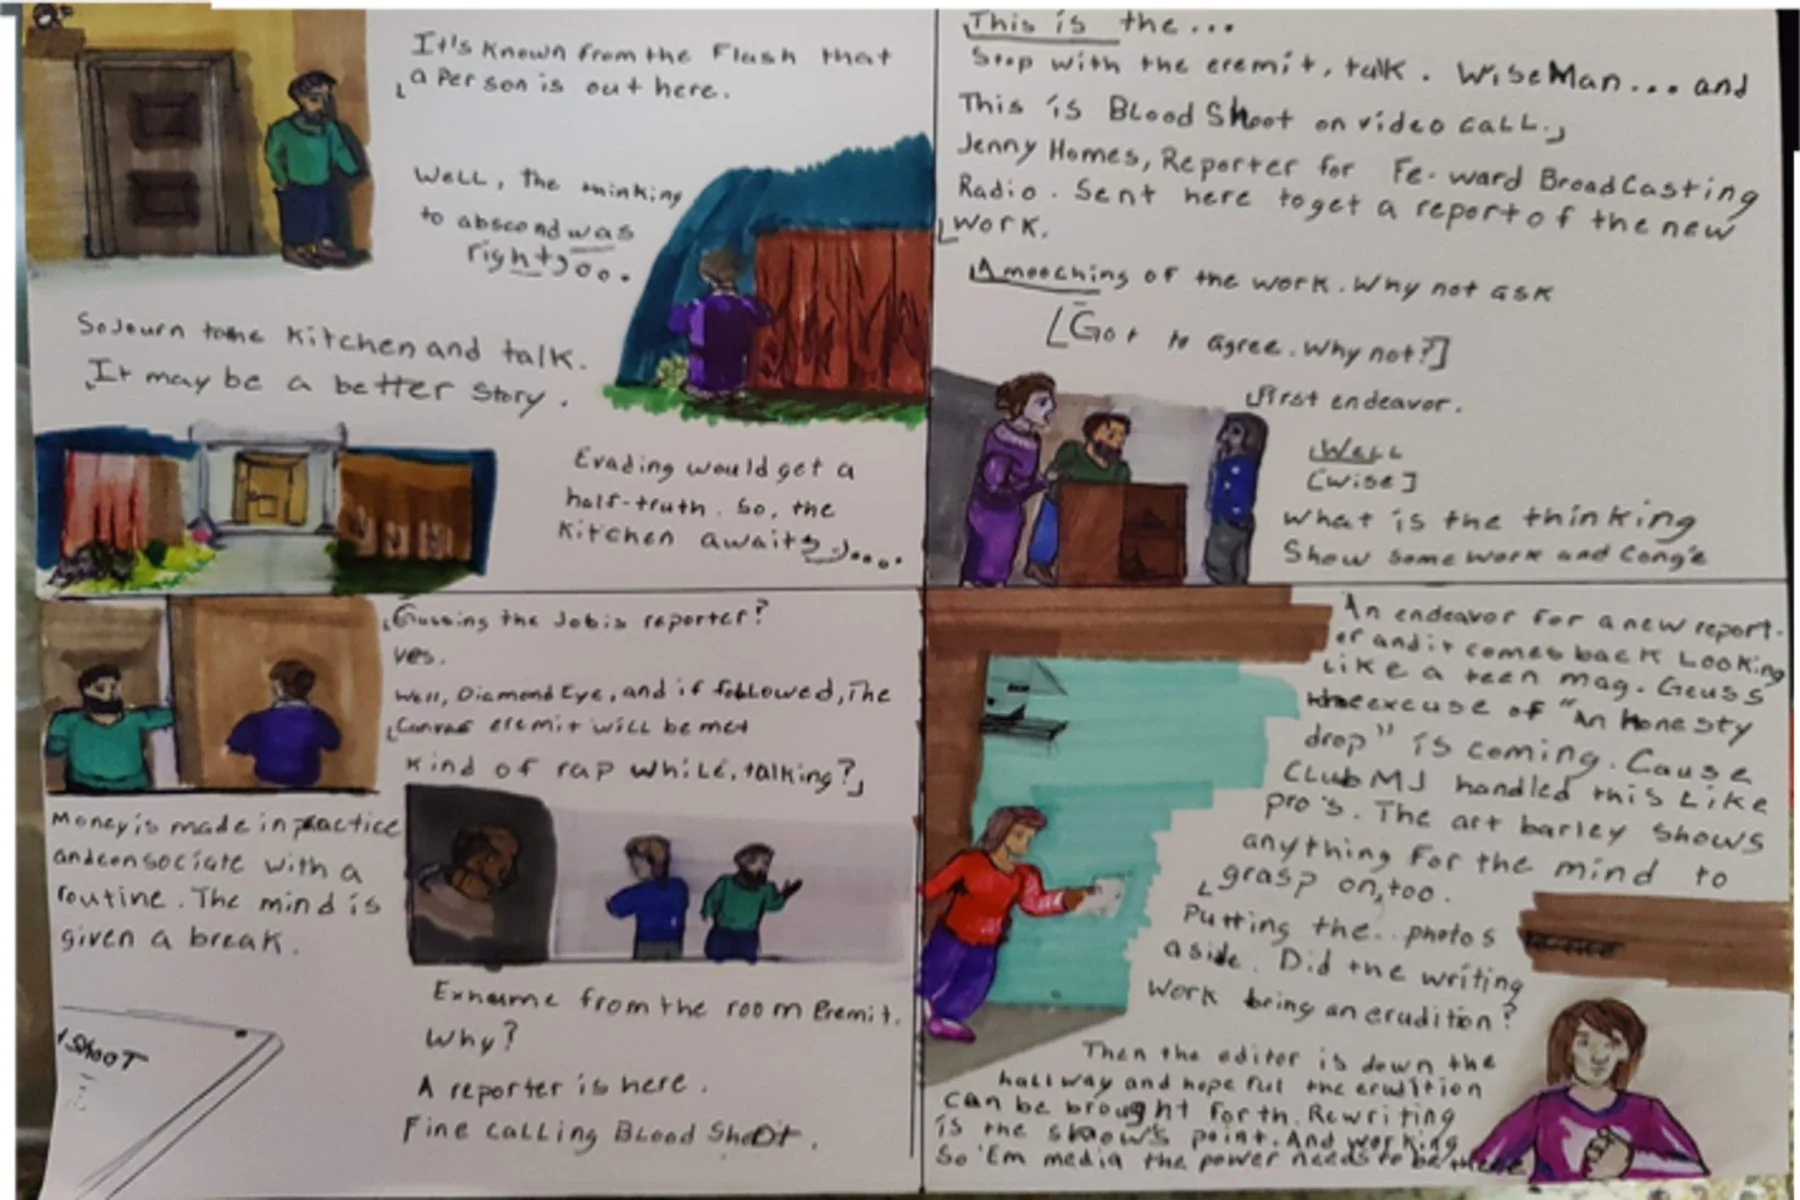 It's known from the Flash that
a Person is out here.
Well, the thinking
to abscond was
right)...
Sojourn to the Kitchen and talk.
It may be a better story.
Evading would get a
half-truth. So, the
Kitchen awaits)....
Gussing the Job is reporter?
Yes.
Well, Diamond Eye, and if followed, The
Canvas eremit will be met
Kind of rap while, talking?
Money is made in practice
and consociate with a
routine. The mind is
given a break.
SHOOT
Exhume from the room Eremit.
Why?
A reporter is here.
Fine calling Blood Shoot.
This is the...
Stop with the eremit, talk. WiseMan... and
This is Blood Shoot on video call.
Jenny Homes, Reporter for Fe-ward BroadCasting
Radio. Sent here to get a report of the new
work.
A mooching of the work. Why not ask
[Got to agree. Why not?]
First endeavor.
Well
[wise]
What is the thinking
Show some work and Congé
An endeavor for a new report-
er and it comes back Looking
Like a teen mag. Geuss
the excuse of "An Honesty
drop" is coming. Cause
Club MJ handled this Like
pro's. The art barley shows
anything for the mind to
grasp on, too.
Putting the.. photos
aside. Did the writing
work bring an erudition?
Then the editor is down the
hallway and hope ful the erudition
can be brought forth. Rewriting
is the show's point. And working
So 'Em media the power needs to be there